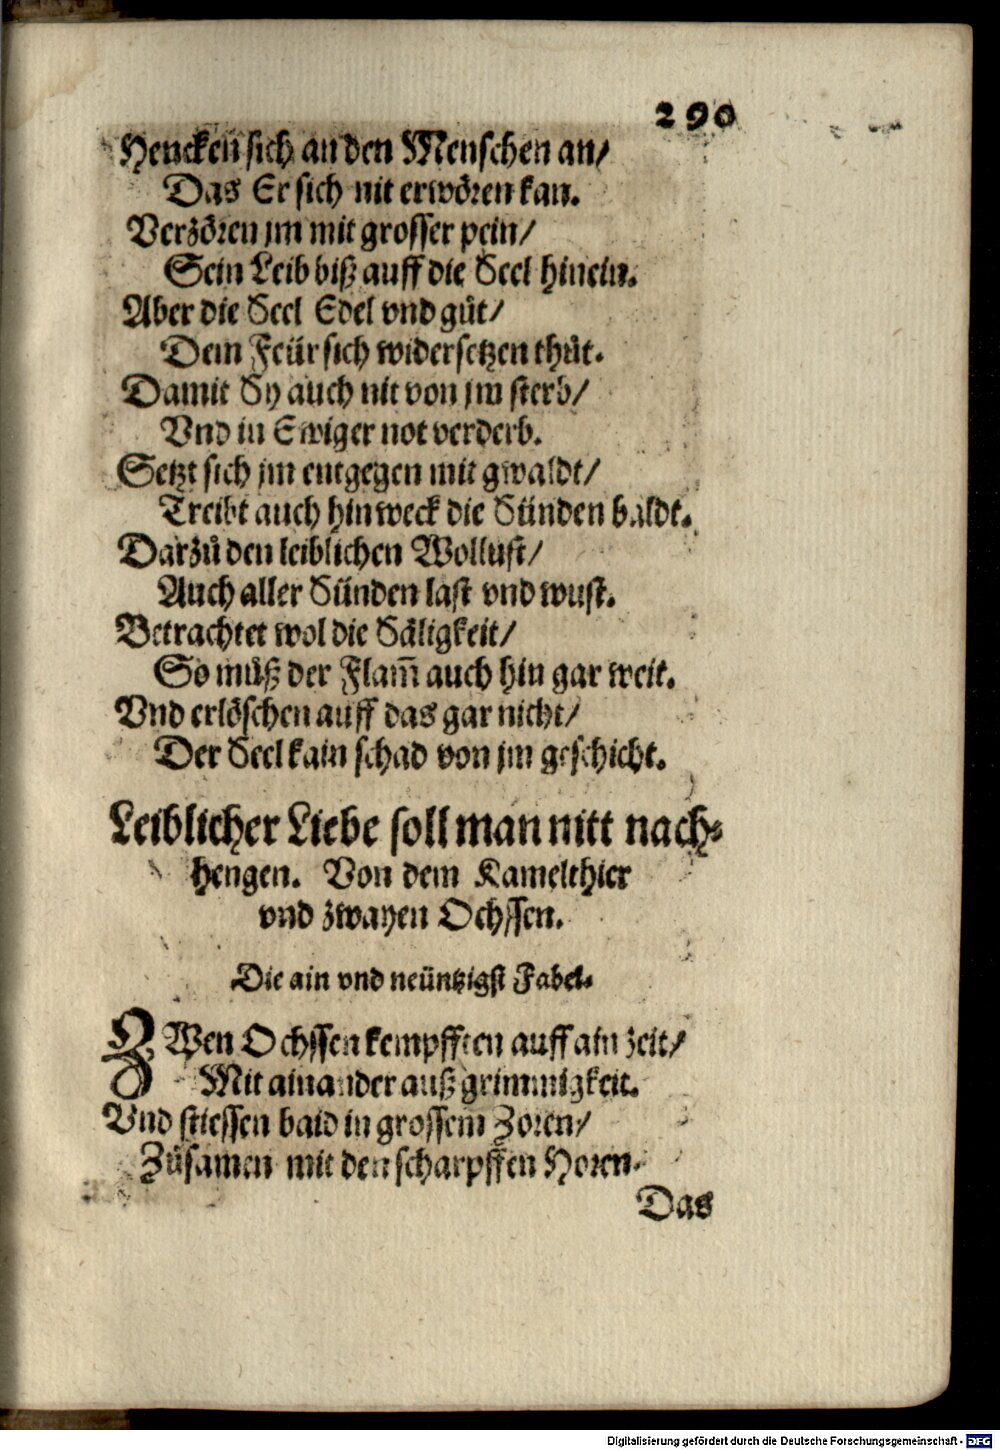 290
Hencken sich an den Menschen an/
Das Er sich nit erwören kan.
Verzören jm mit grosser pein/
Sein Leib biß auff die Seel hinein.
Aber die Seel Edel vnd gůt/
Dem Feür sich widersetzen thůt.
Damit Sy auch nit von jm sterb/
Vnd in Ewiger not verderb.
Setzt sich jm entgegen mit gwaldt/
Treibt auch hinweck die Sünden baldt.
Darzů den leiblichen Wollust/
Auch aller Sünden last vnd wust.
Betrachtet wol die Säligkeit/
So můß der Flam̄ auch hin gar weit.
Vnd erlöschen auff das gar nicht/
Der Seel kain schad von jm geschicht.
Leiblicher Liebe soll man nitt nach⸗
hengen. Von dem Kamelthier
vnd zwayen Ochssen.
Die ain vnd neüntzigst Fabel.
ZWen Ochssen kempfften auff ain zeit/
Mit ainander auß grimmigkeit.
Vnd stiessen baid in grossem Zoren/
Zůsamen mit den scharpffen Horen.
Das
Digitalisierung gefördert durch die Deutsche Forschungsgemeinschaft - DFG